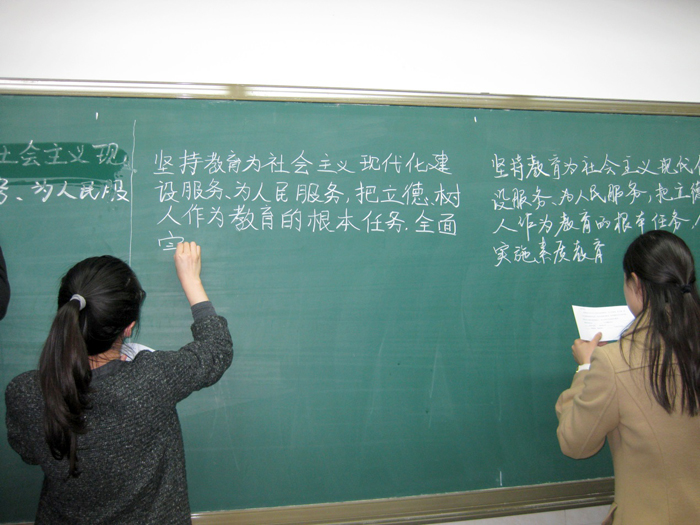 社会主义现
、为人民服
坚持教育为社会主义现代化建
设服务、为人民服务,把立德树
人作为教育的根本任务.全面
坚持教育为社会主义现代
设服务、为人民服务,把立
人作为教育的根本任务.
实施素质教育